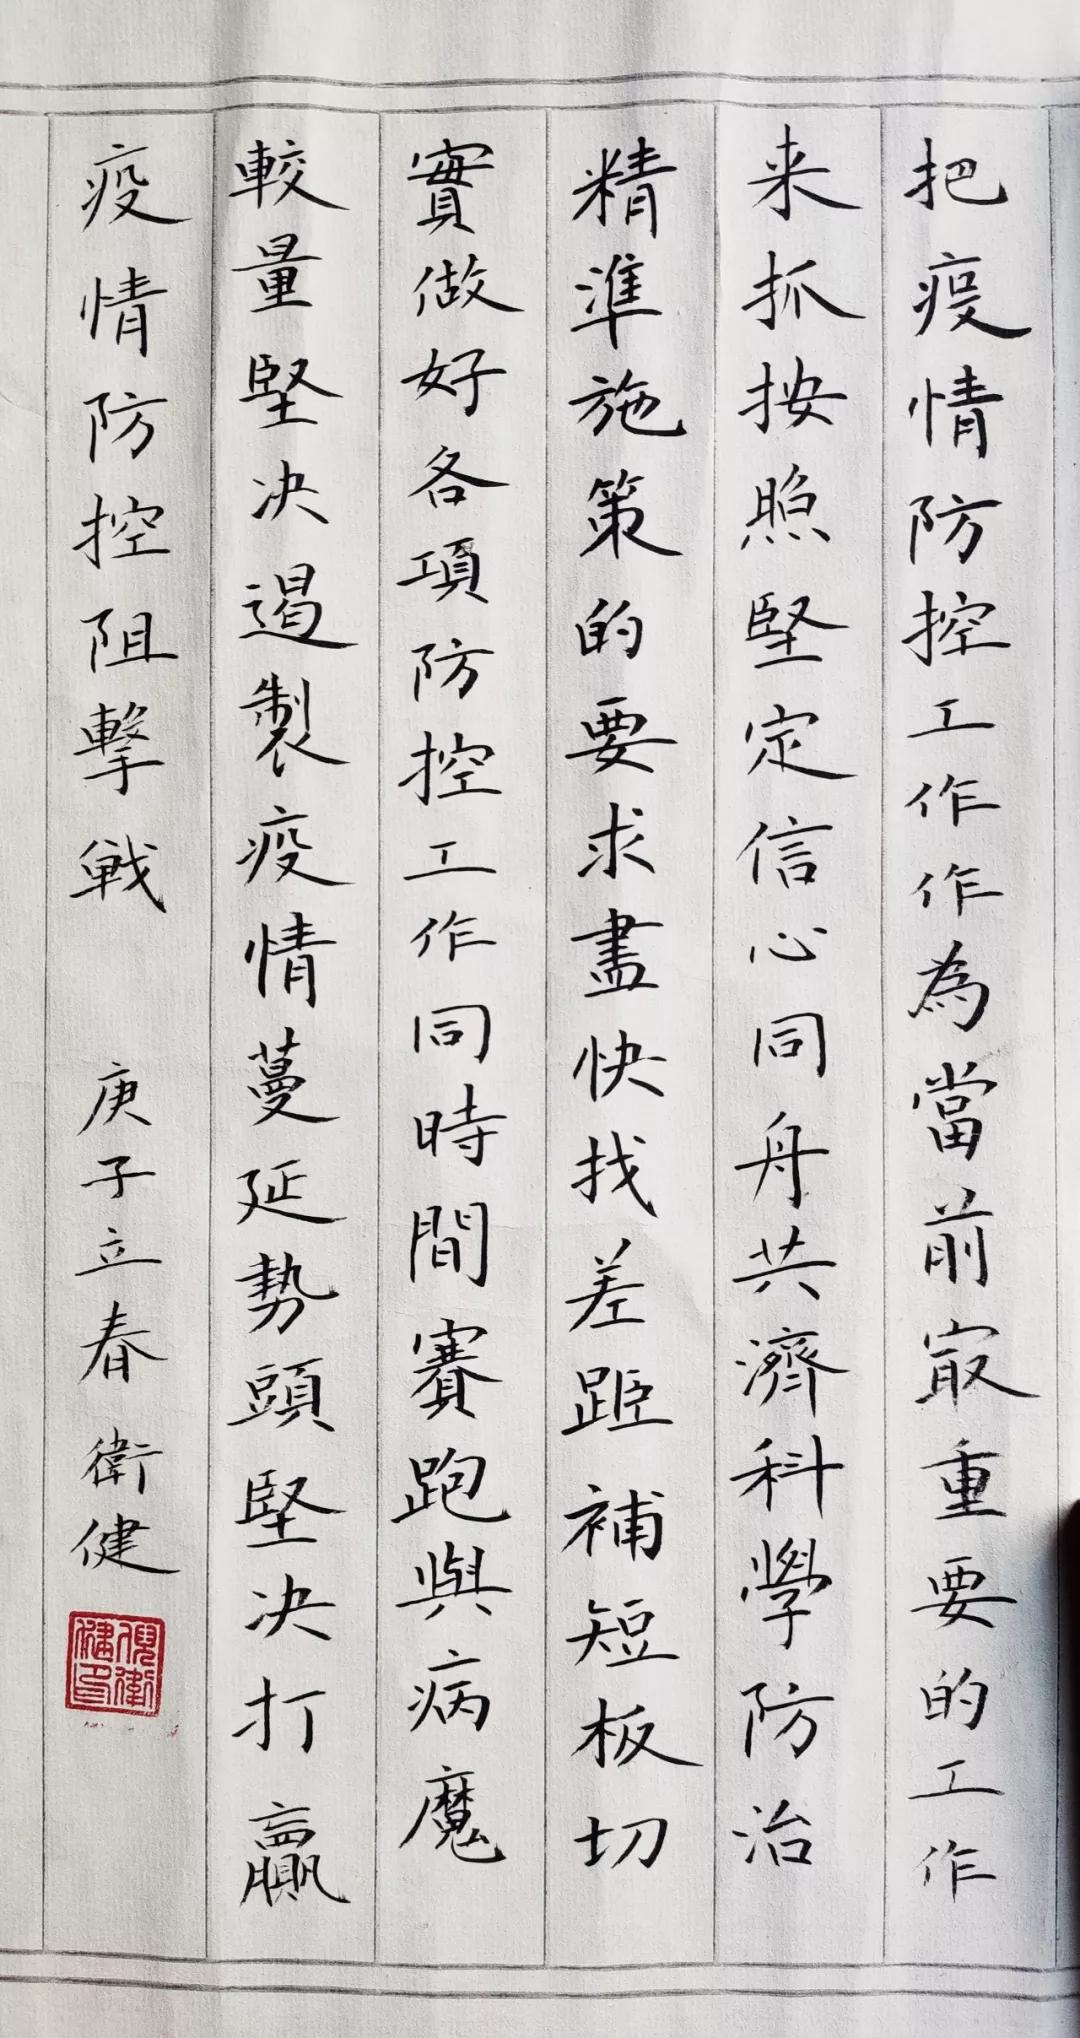 把疫情防控工作作為當前冣重要的工作
来抓按照堅定信心同舟共濟科學防治
精準施策的要求盡快找差距補短板切
實做好各項防控工作同時間賽跑與病魔
較量堅决遏製疫情蔓延勢頭堅决打贏
疫情防控阻擊戰 庚子立春 衛健